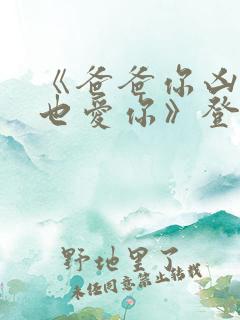 《爸爸你凶
也爱你》登
野地里了
未经同意禁止转载